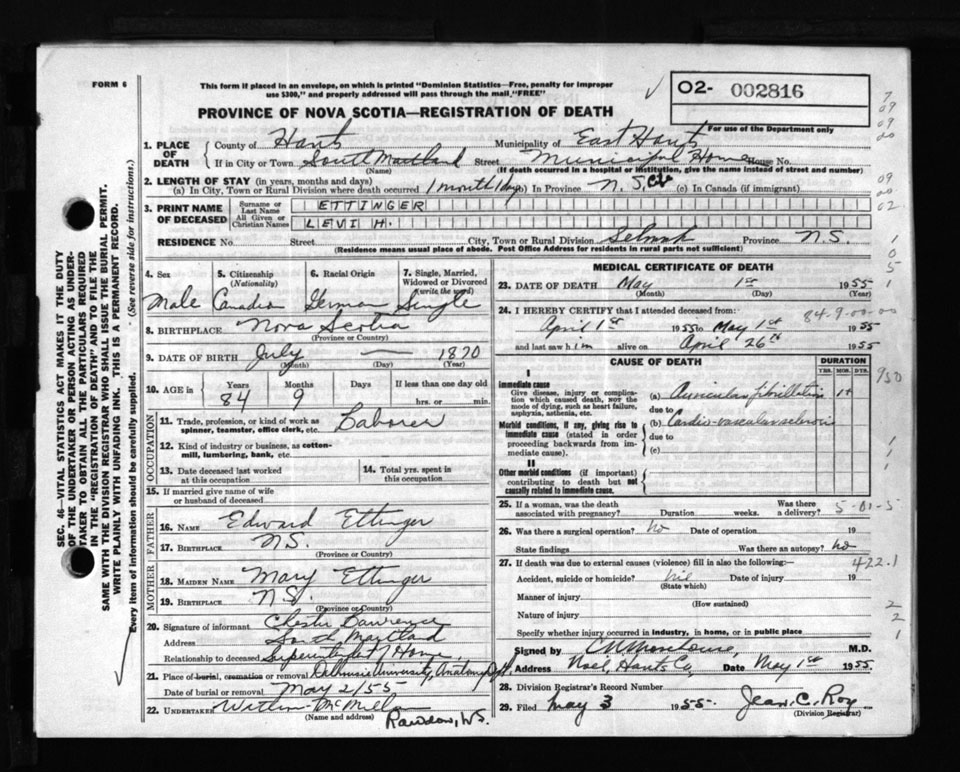 FORM 6
This form if placed in an envelope, on which is printed "Dominion Statistics—Free, penalty for improper
use $300," and properly addressed will pass through the mail, "FREE"
PROVINCE OF NOVA SCOTIA—REGISTRATION OF DEATH
O2- 002816
For use of the Department only
SEC. 46—VITAL STATISTICS ACT MAKES IT THE DUTY
OF THE UNDERTAKER OR PERSON ACTING AS UNDER-
TAKER TO OBTAIN ALL THE PARTICULARS REQUIRED
IN THE "REGISTRATION OF DEATH" AND TO FILE THE
SAME WITH THE DIVISION REGISTRAR WHO SHALL ISSUE THE BURIAL PERMIT.
WRITE PLAINLY WITH UNFADING INK. THIS IS A PERMANENT RECORD.
Every item of information should be carefully supplied. (See reverse side for instructions.)
1. PLACE OF DEATH
County of Hants Municipality of East Hants
If in City or Town South Maitland Street Municipal Home House No.
(Name) (If death occurred in a hospital or institution, give the name instead of street and number)
2. LENGTH OF STAY (in years, months and days)
(a) In City, Town or Rural Division where death occurred 1 month 1 day (b) In Province N.S. (c) In Canada (if immigrant)
3. PRINT NAME OF DECEASED
Surname or Last Name ETTINGER
All Given or Christian Names LEVI H.
RESIDENCE No. Street City, Town or Rural Division Selmah Province N.S.
(Residence means usual place of abode. Post Office Address for residents in rural parts not sufficient)
4. Sex 5. Citizenship (Nationality) 6. Racial Origin 7. Single, Married, Widowed or Divorced (write the word)
Male Canadian German Single
8. BIRTHPLACE Nova Scotia
(Province or Country)
9. DATE OF BIRTH July — 1870
(Month) (Day) (Year)
10. AGE in Years Months Days If less than one day old
84 9 hrs. or min.
OCCUPATION
11. Trade, profession, or kind of work as spinner, teamster, office clerk, etc. Laborer
12. Kind of industry or business, as cotton-mill, lumbering, bank, etc.
13. Date deceased last worked at this occupation
14. Total yrs. spent in this occupation
15. If married give name of wife or husband of deceased
FATHER
16. NAME Edward Ettinger
17. BIRTHPLACE N.S.
(Province or Country)
MOTHER
18. MAIDEN NAME Mary Ettinger
19. BIRTHPLACE N.S.
(Province or Country)
20. Signature of informant Chester Lawrence
Address South Maitland
Relationship to deceased Superintendent Home
21. Place of burial, cremation or removal Dalhousie University, Anatomy Dept.
Date of burial or removal May 2/55
22. UNDERTAKER McMillan
(Name and address) Rawdon, N.S.
MEDICAL CERTIFICATE OF DEATH
23. DATE OF DEATH May 1st 1955
(Month) (Day) (Year)
24. I HEREBY CERTIFY that I attended deceased from: 84-9-00-00
April 1st 1955 to May 1st 1955
and last saw him alive on April 26th 1955
CAUSE OF DEATH
DURATION
YRS. MOS. DYS.
I
Immediate cause
Give disease, injury or complication which caused death, not the mode of dying, such as heart failure, asphyxia, asthenia, etc.
(a) Auricular fibrillation 1+
due to
Morbid conditions, if any, giving rise to immediate cause (stated in order proceeding backwards from immediate cause).
(b) Cardio-vascular sclerosis
due to
(c)
II
Other morbid conditions (if important) contributing to death but not causally related to immediate cause.
25. If a woman, was the death associated with pregnancy? Duration weeks. Was there a delivery? 5-01-5
26. Was there a surgical operation? No Date of operation 19
State findings Was there an autopsy? No
27. If death was due to external causes (violence) fill in also the following:— 422.1
Accident, suicide or homicide? nil Date of injury 19
(State which)
Manner of injury
(How sustained)
Nature of injury
Specify whether injury occurred in industry, in home, or in public place
Signed by M.D.
Address Noel, Hants Co, Date May 1st 1955
28. Division Registrar's Record Number
29. Filed May 3 1955. Jean C. Roy
(Division Registrar)
7
09
09
00
09
00
02
1
0
5
1
950
1
1
1
2
2
1